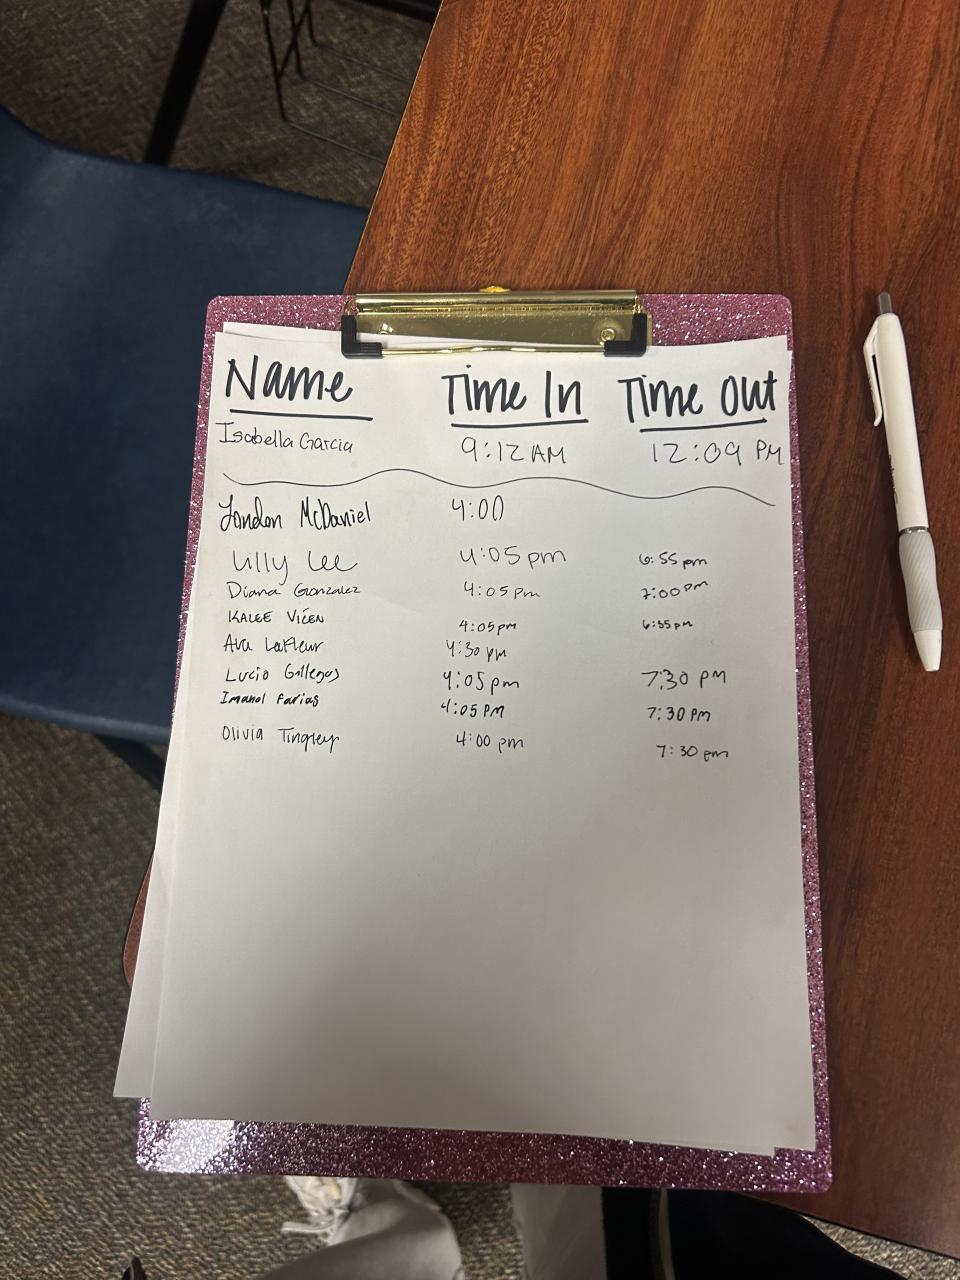 Name Time In Time Out
Isabella Garcia 9:12 AM 12:09 PM
McDaniel 4:00
Lilly Lee 4:05pm 6:55pm
Diana Gonzalez 4:05pm 7:00pm
KALEE 4:05pm
Ava LaFleur 4:30 pm
Lucio Gallegos 4:05pm 7:30 PM
Imanol Farias 4:05 PM 7:30 PM
Olivia Tingley 4:00 pm 7:30 pm